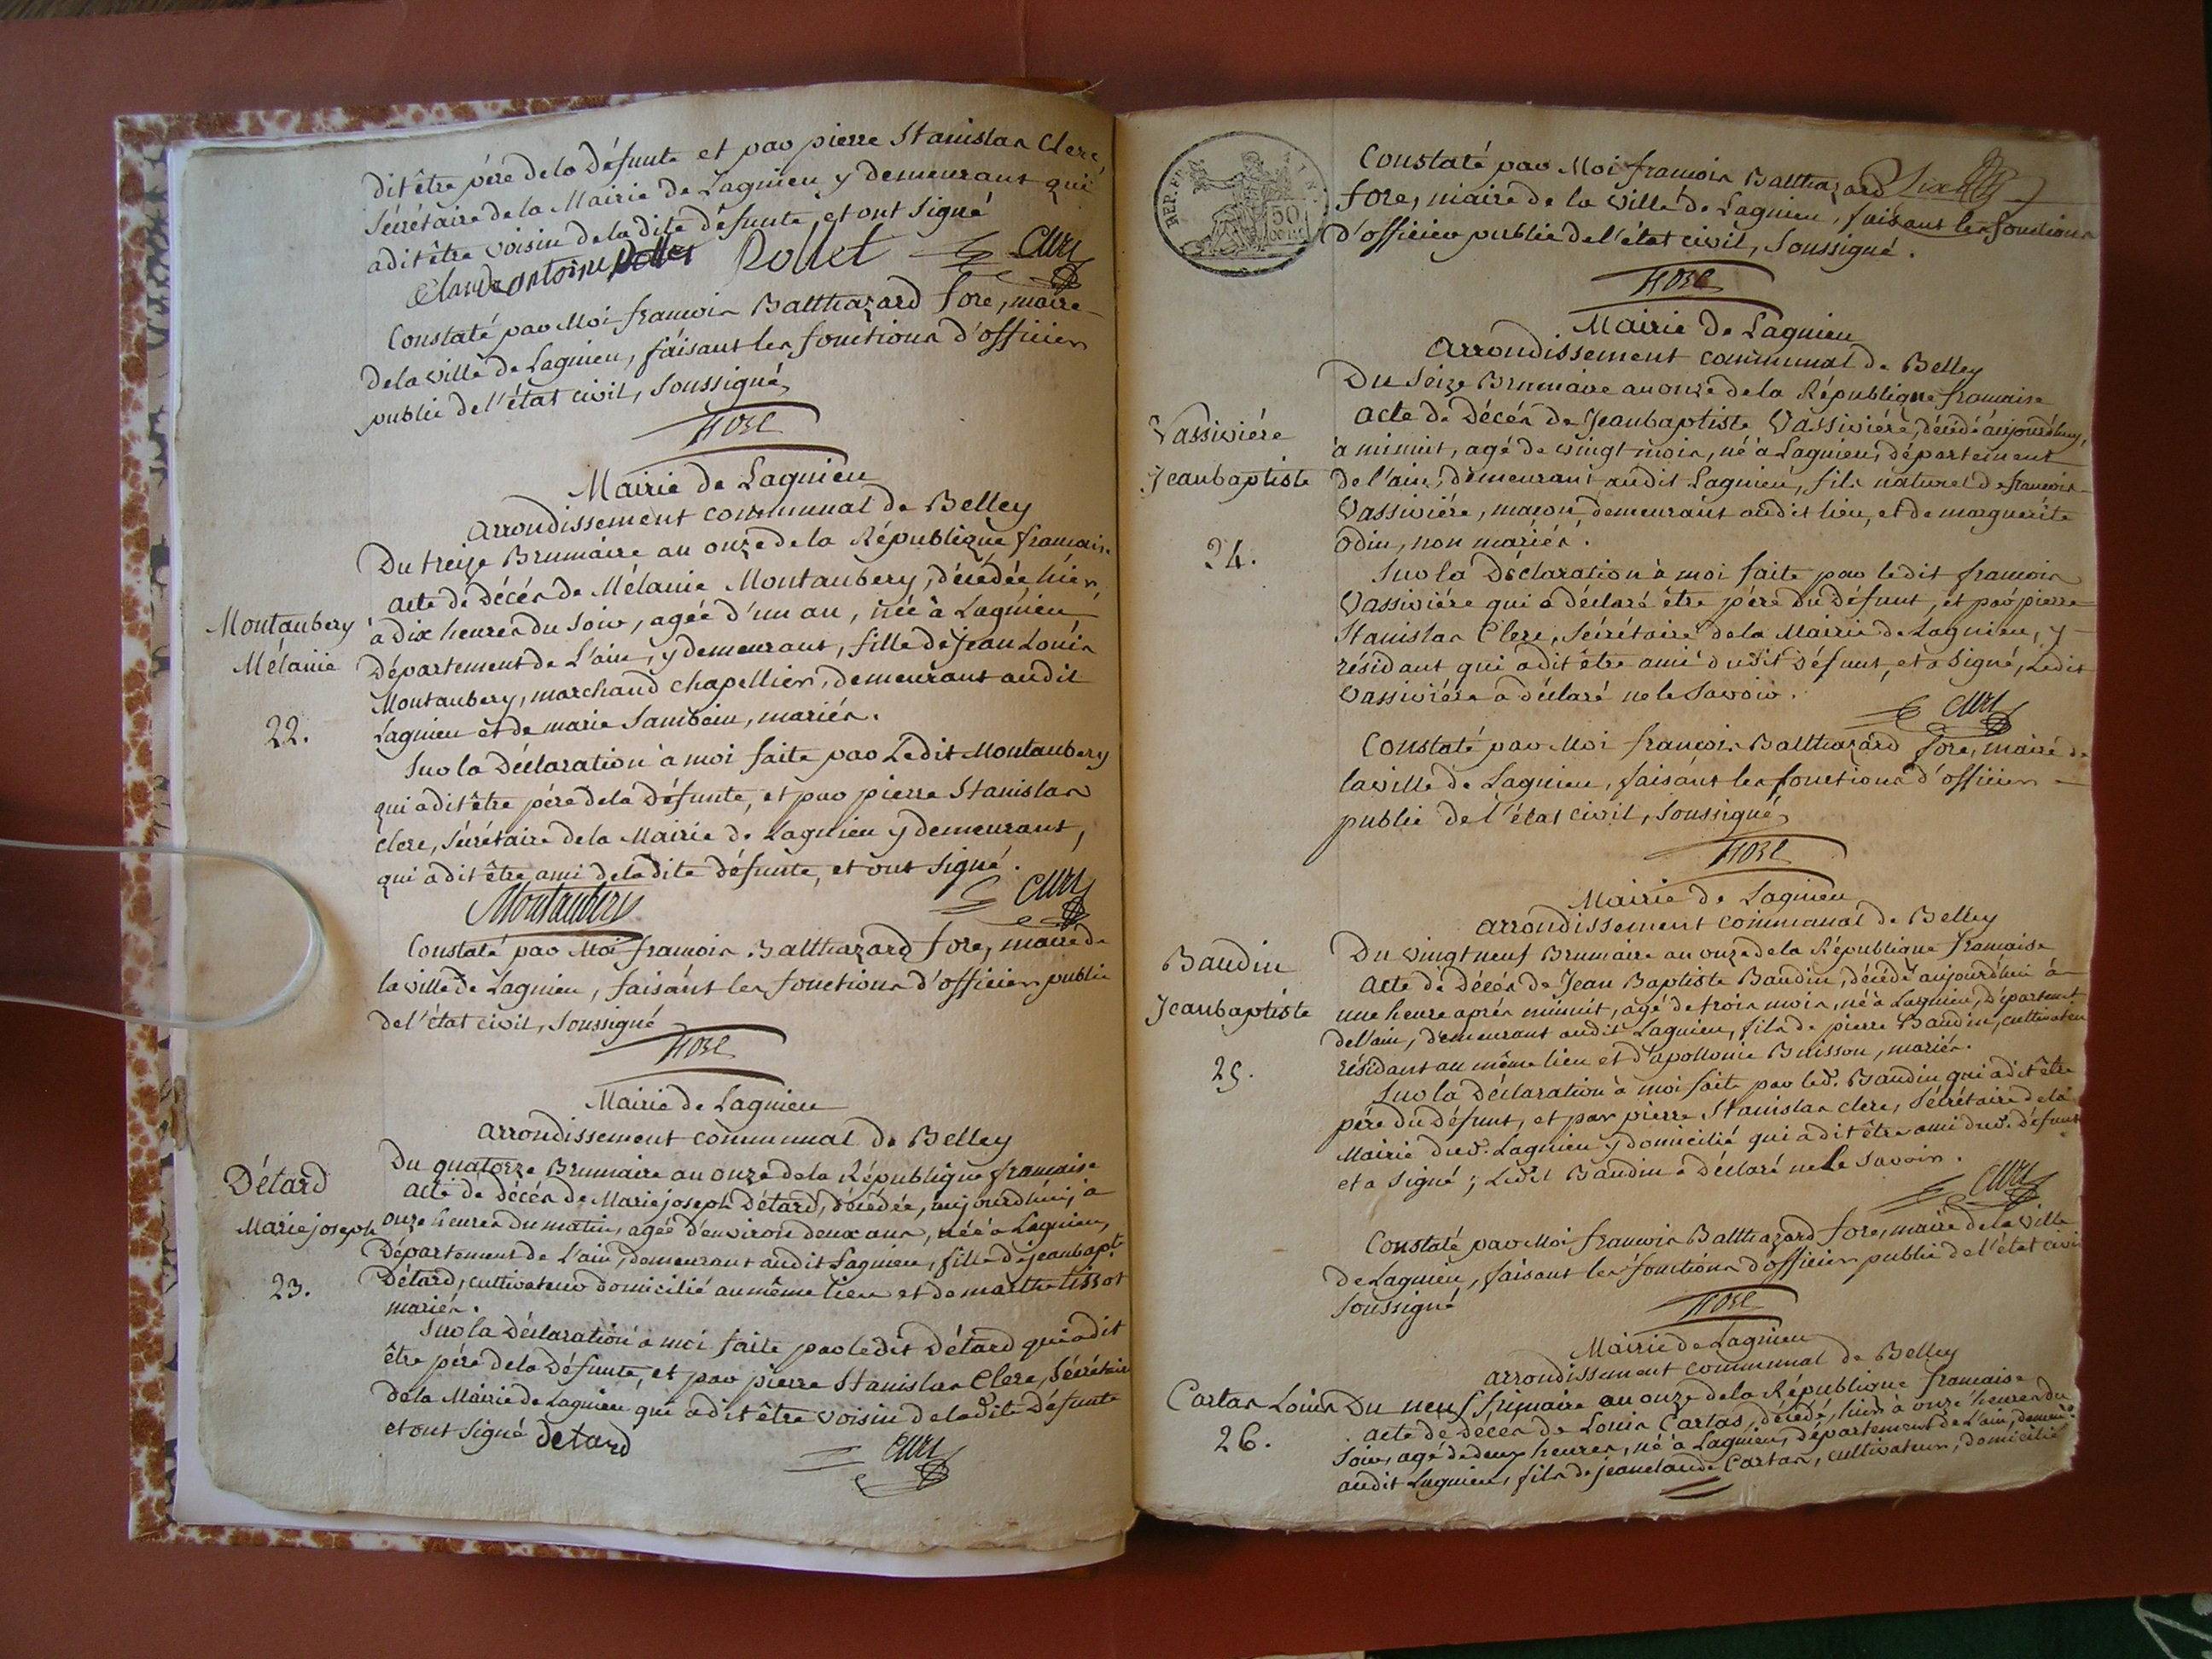 dit être péré dela défunte et par pierre Stanislas Clerc,
Sécrétaire de la Mairie de Lagnieu y demeurant qui
a dit être voisin de ladite défunte, et ont signé
Claude antoine Rollet Rollet Clerc
Constaté par Moi françois Balthazard fore, maire
de la ville de Lagnieu, faisant les fonctions d'officier
public de l'état civil, soussigné,
fore
Mairie de Lagnieu
arrondissement communal de Belley
Montaubery
Mélanie
22.
Du treize Brumaire an onze de la République francaise
acte de Décés de Mélanie Montaubery, décédée hier,
à dix heures du soir, agée d'un an, née à Lagnieu
Département de L'ain, y demeurant, fille de Jean Louis
Montaubery, marchand chapellier, demeurant audit
Lagnieu et de marie, mariés.
Sur la Déclaration à moi faite par Ledit Montaubery
qui a dit être pére dela Défunte, et par pierre Stanislas
clerc, Sécrétaire dela Mairie de Lagnieu y demeurant,
qui a dit être ami deladite défunte, et ont signé.
Montaubery Clerc
Constaté par Moi françois Balthazard fore, maire de
la ville de Lagnieu, faisant les fonctions d'officier public
de l'état civil, soussigné
fore
Mairie de Lagnieu
arrondissement communal de Belley
Détard
Marie joseph
23.
Du quatorze Brumaire an onze dela République francaise
acte de décés de Marie joseph Détard, décédée, aujourd'hui, à
onze heures du matin, agée d'environ deux ans, née à Lagnieu,
Département de L'ain, demeurant audit Lagnieu, fille de jean bapt.
Détard, cultivateur domicilié au même lieu et de marthe tissot
mariés.
Sur la Déclaration à moi faite par ledit Détard qui a dit
être pére dela Défunte, et par pierre Stanislas Clerc, Sécrétaire
dela Mairie de Lagnieu qui a dit être voisin deladite Défunte
et ont signé detard
Clerc
REP. FRA. AIN.
50
CENT.
Constaté par Moi françois Balthazard
fore, maire de la ville de Lagnieu, faisant les fonctions
d'officier public de l'état civil, soussigné.
fore
Mairie de Lagnieu
arrondissement communal de Belley
Vassiviére
Jean baptiste
24.
Du seize Brumaire an onze de la République francaise
acte de Décés de Jean baptiste Vassiviére, décédé aujourd'huy,
à minuit, agé de vingt mois, né à Lagnieu, département
de l'ain, demeurant audit Lagnieu, fils naturel de francois
Vassiviére, macon, demeurant audit lieu, et de marguerite
Odin, non mariés.
Sur la Déclaration à moi faite par ledit francois
Vassiviére qui a déclaré être pére du défunt, et par pierre
Stanislas Clerc, Sécrétaire dela Mairie de Lagnieu, y
résidant qui a dit être ami dudit défunt, et a signé, Ledit
Vassiviére a déclaré ne le savoir.
Clerc
Constaté par Moi françois Balthazard fore, maire de
la ville de Lagnieu, faisant les fonctions d'officier
public de l'état civil, soussigné,
fore
Mairie de Lagnieu
arrondissement communal de Belley
Baudin
Jean baptiste
25.
Du vingt neuf Brumaire an onze dela République francaise
acte de Décés de Jean Baptiste Baudin, décédé aujourd'hui à
une heure aprés minuit, agé de trois mois, né à Lagnieu, département
del'ain, demeurant audit Lagnieu, fils de pierre Baudin, cultivateur
résidant au même lieu et d'apollonie Buisson, mariés.
Sur la Déclaration à moi faite par led. Baudin qui a dit être
pére du défunt, et par pierre Stanislas clerc, Sécrétaire dela
Mairie dud. Lagnieu y domicilié qui a dit être ami dud. défunt
et a signé; Ledit Baudin a déclaré ne le savoir.
Clerc
Constaté par Moi francois Balthazard fore, maire dela ville
de Lagnieu, faisant les fonctions d'officier public de l'état civil
soussigné
fore
Mairie de Lagnieu
arrondissement communal de Belley
Cartas Louis
26.
Du neuf frimaire an onze dela République francaise
acte de décés de Louis Cartas, décédé, hier à onze heures du
soir, agé de deux heures, né à Lagnieu, département de L'ain, demeur.t
audit Lagnieu, fils de jean claude Cartas, cultivateur, domicilié